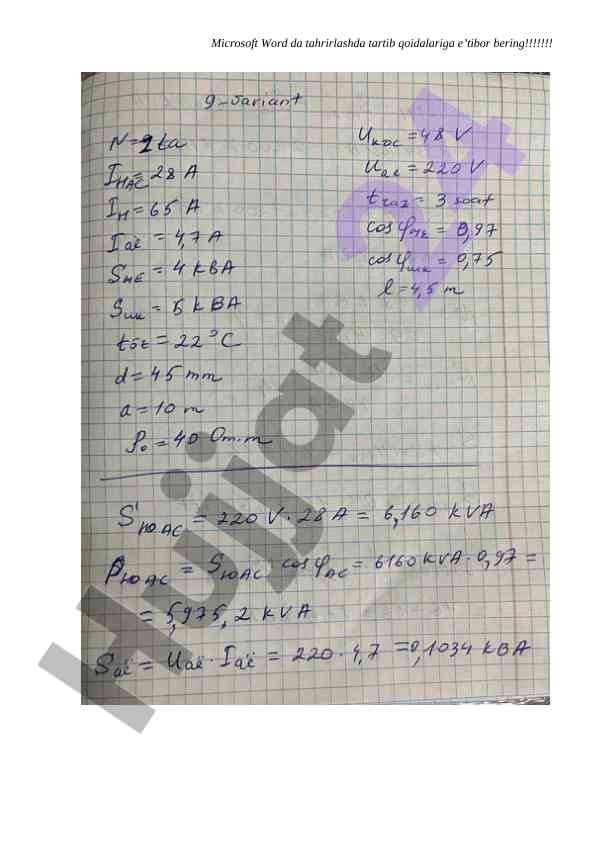 Microsoft Word da tahrirlashda tartib qoidalariga e’tibor bering!!!!!!!
9-variant
N=2 ta
I_HAC=28 A
I_H=65 A
I_aë = 4,7 A
S_HE = 4 kBA
S_шк = 5 kBA
t_o't = 22°C
d=45 mm
a=10 m
ρ_o=40 Om·m
U_КОС=48 V
U_aë=220 V
t_raz = 3 soat
cosφ_HE = 0,97
cosφ_шк = 0,75
l=4,5 m
S'_ЮАС = 220 V·28A = 6,160 KVA
P_ЮАС = S_ЮАС cosφ_AC = 6160KVA·0,97 =
= 5,975,2 KVA
S_aë = U_aë·I_aë = 220·4,7 =0,1034 KBA
Hujjat
24